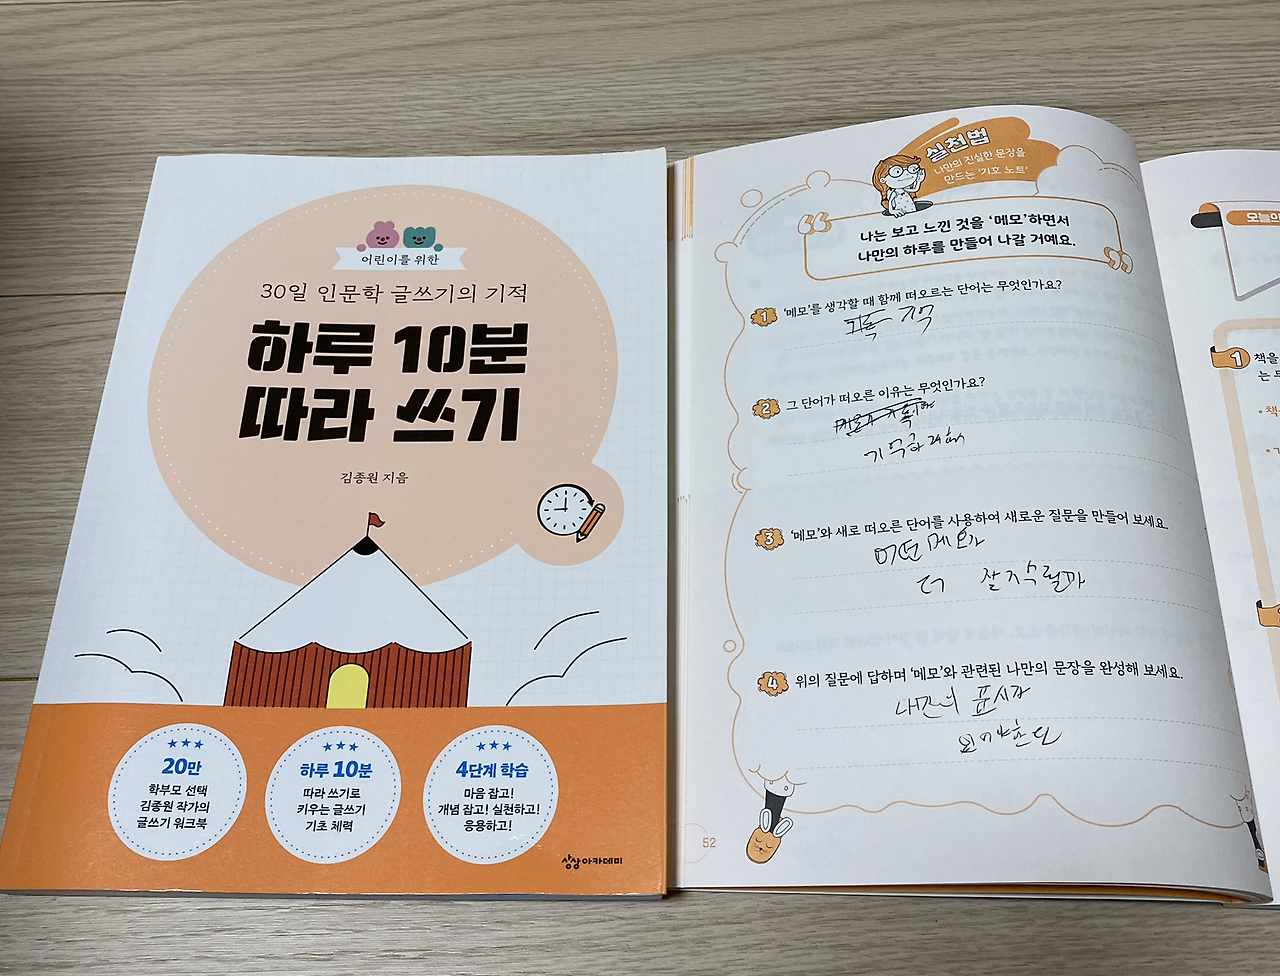 어린이를 위한
30일 인문학 글쓰기의 기적
하루 10분
따라 쓰기
김종원 지음
★★★
20만
학부모 선택
김종원 작가의
글쓰기 워크북
★★★
하루 10분
따라 쓰기로
키우는 글쓰기
기초 체력
★★★
4단계 학습
마음 잡고!
개념 잡고! 실천하고!
응용하고!
상상아카데미
실천법
나만의 진실한 문장을
만드는 '기호 노트'
나는 보고 느낀 것을 '메모'하면서
나만의 하루를 만들어 나갈 거예요.
1 '메모'를 생각할 때 함께 떠오르는 단어는 무엇인가요?
기록 기억
2 그 단어가 떠오른 이유는 무엇인가요?
3 '메모'와 새로 떠오른 단어를 사용하여 새로운 질문을 만들어 보세요.
어떤 메모가
더 잘
4 위의 질문에 답하며 '메모'와 관련된 나만의 문장을 완성해 보세요.
나만의
52
오늘의
1 책을
는 두
• 책